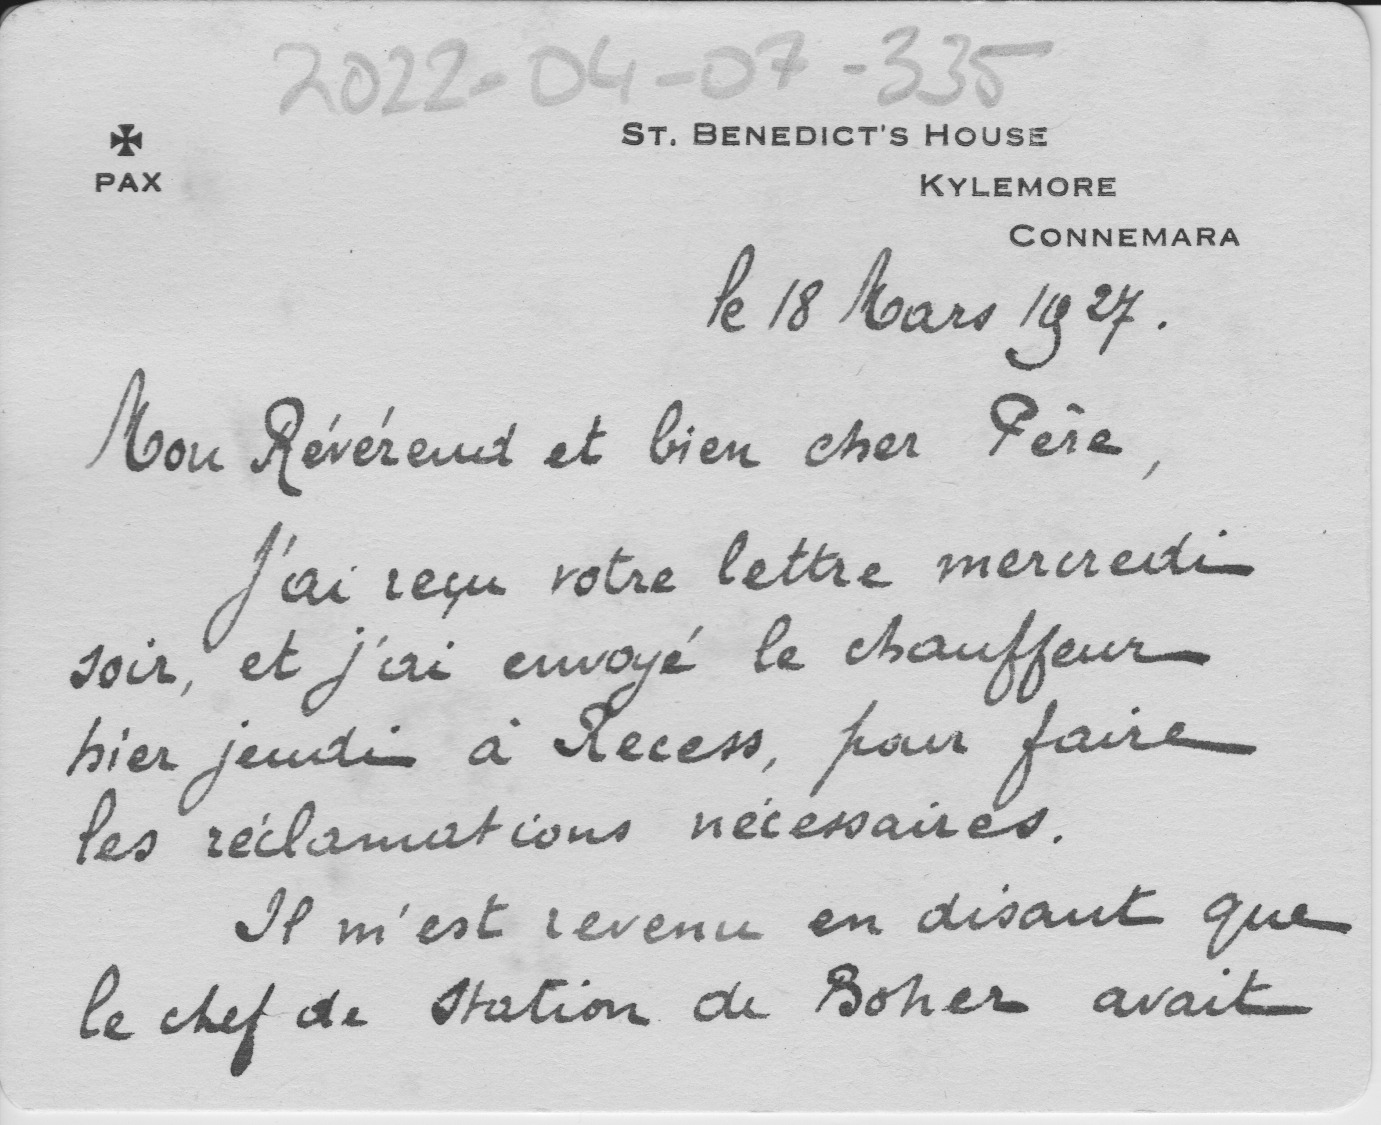 2022-04-07-335
✠
PAX
ST. BENEDICT'S HOUSE
KYLEMORE
CONNEMARA
le 18 Mars 1927.
Mon Révérend et bien cher Père,
J'ai reçu votre lettre mercredi
soir, et j'ai envoyé le chauffeur
hier jeudi à Recess, pour faire
les réclamations nécessaires.
Il m'est revenu en disant que
le chef de station de Boher avait